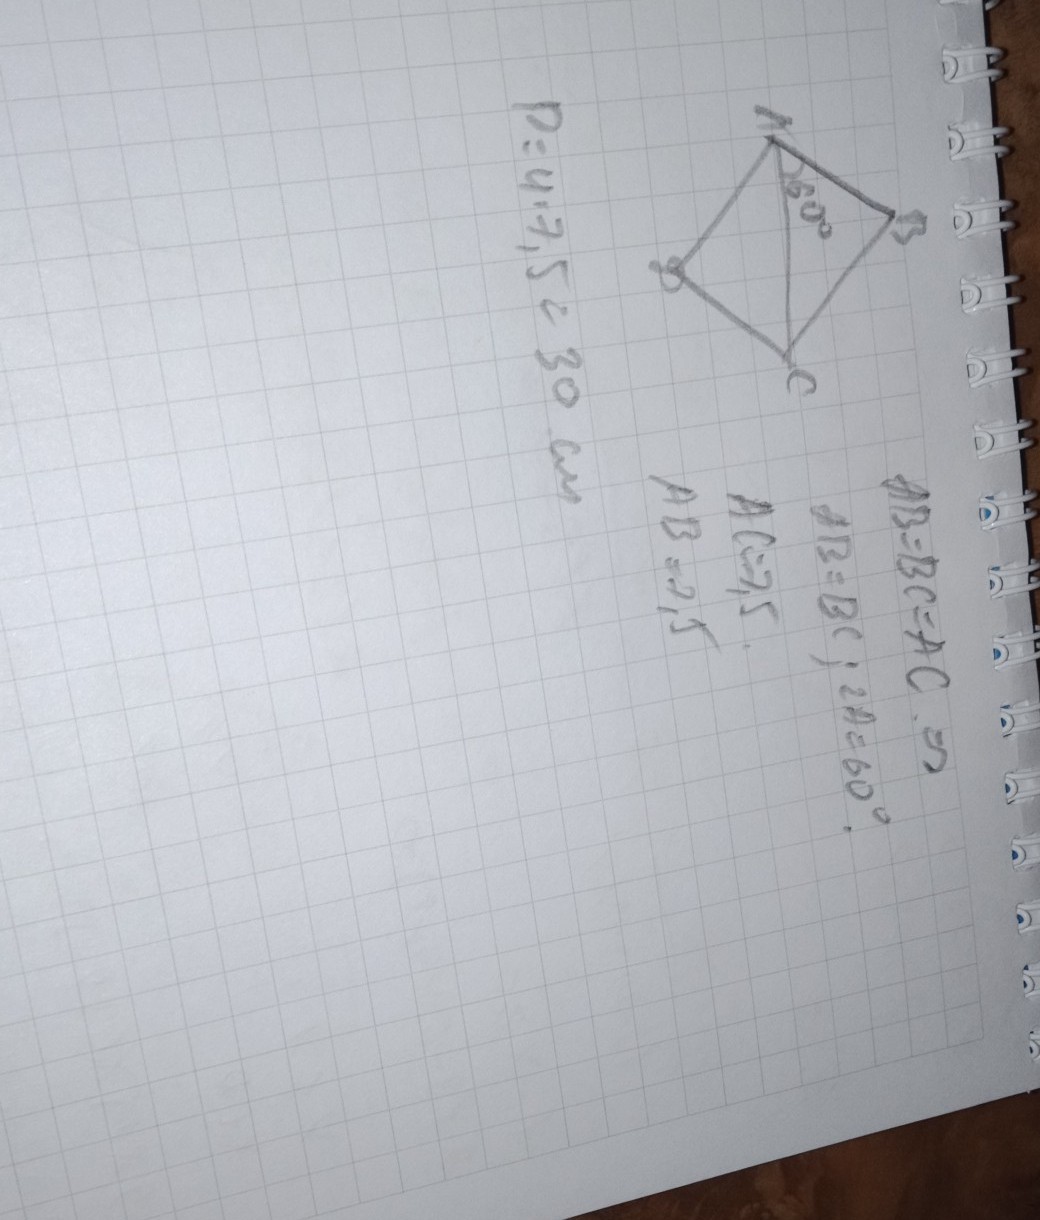 A
B
C
60°
AB=BC=AC
AB=BC; ∠A=60°.
AC=7,5.
AB=7,5
P=4·7,5=30 см